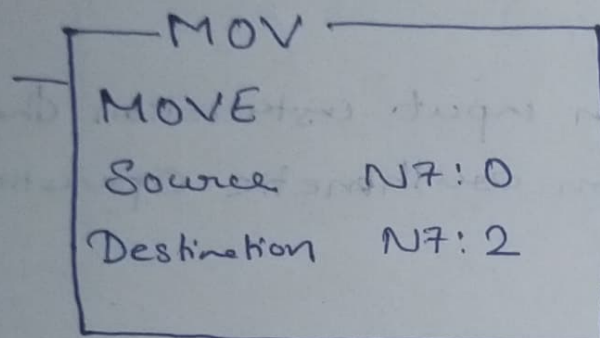 MOV
MOVE
Source N7:0
Destination N7:2